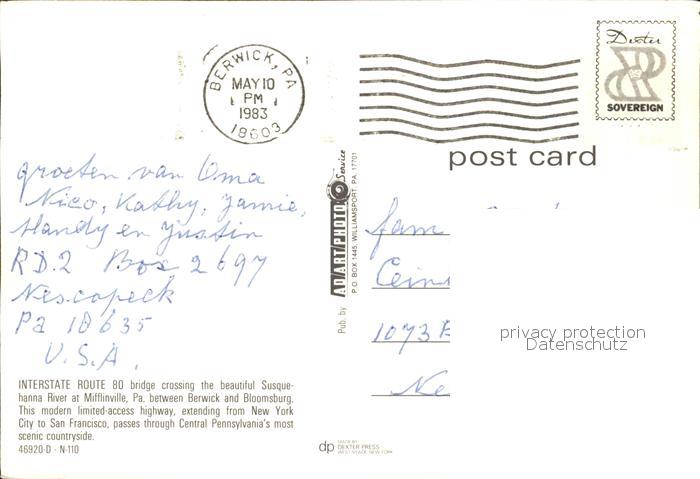 BERWICK, PA
MAY 10
PM
1983
18603
Dexter
SOVEREIGN
post card
groeten van Oma
Nico, Kathy, Jamie,
Handy en Justin
R D. 2 Box 2697
Nescopeck
Pa 18635
U.S.A.
INTERSTATE ROUTE 80 bridge crossing the beautiful Susque-
hanna River at Mifflinville, Pa. between Berwick and Bloomsburg.
This modern limited-access highway, extending from New York
City to San Francisco, passes through Central Pennsylvania's most
scenic countryside.
46920-D - N-110
Pub. by AD/ART/PHOTO Service
P.O. BOX 1445, WILLIAMSPORT, PA. 17701
fam
Cein
1073 E
Ne
privacy protection
Datenschutz
dp MADE BY
DEXTER PRESS
WEST NYACK, NEW YORK